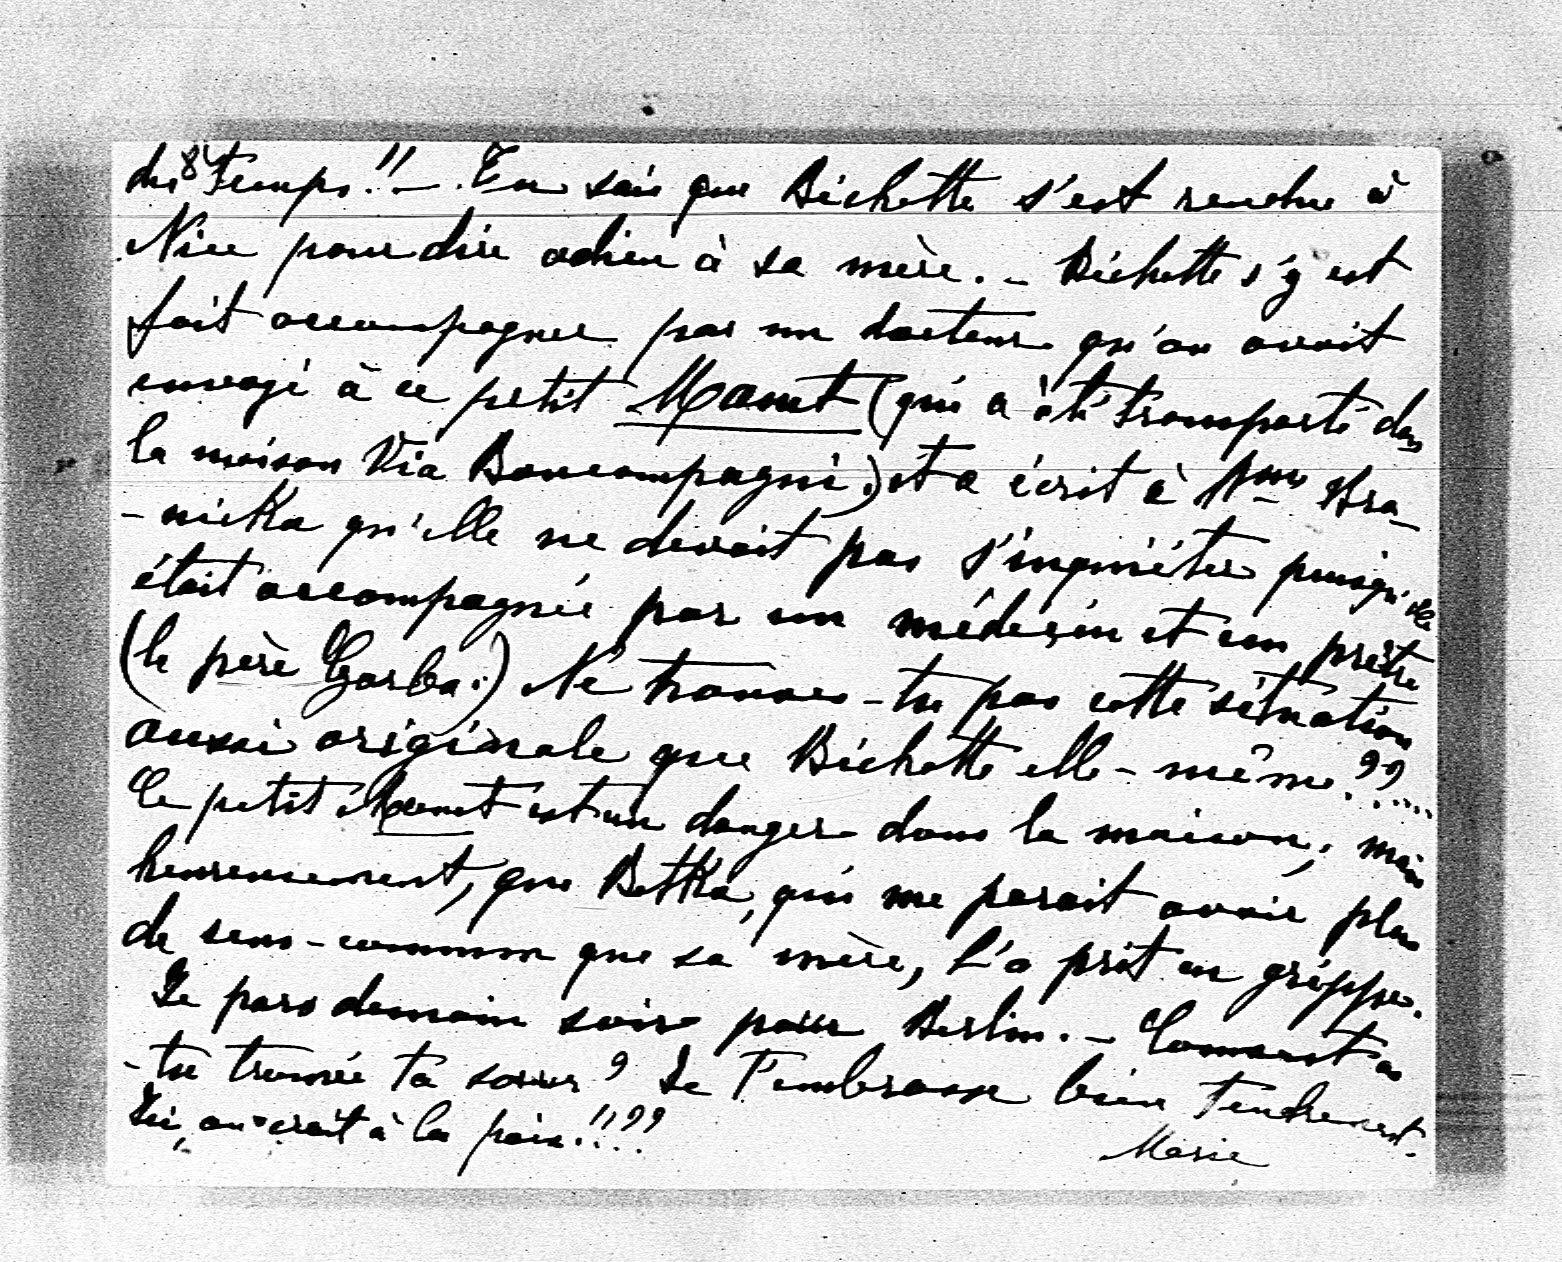 du temps!! — Tu sais que Bichette s'est rendue à
Nice pour dire adieu à sa mère. — Bichette s'y est
fait accompagner par un docteur qu'on avait
envoyé à ce petit (qui a été transporté dans
la maison Via Boncompagni.) et a écrit à Mme Bra-
-nicka qu'elle ne devait pas s'inquiéter puisqu'elle
était accompagnée par un médecin et un prêtre
(le père Gorba.) Ne trouves-tu pas cette situation
aussi originale que Bichette elle-même??....
Ce petit est un danger dans la maison; mais
heureusement, que Betka, qui me parait avoir plus
de sens-commun que sa mère, l'a prit en grippe.
Je pars demain soir pour Berlin. — Comment as
-tu trouvée ta soeur? Je t'embrasse bien tendrement.
Ici, on croit à la paix!!??
Marie